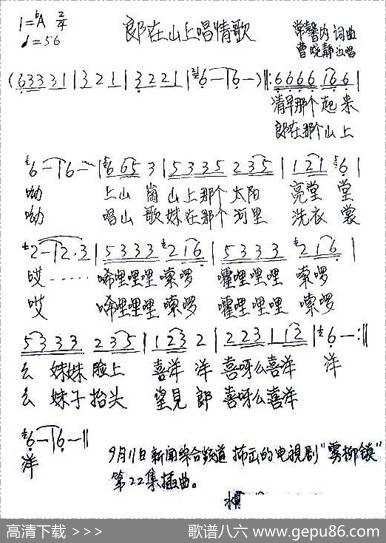 1=♭A 2/4
♩=56
郎在山上唱情歌
常馨内 词曲
曹晓静 演唱
(6 3 3 3 1 | 3 2 1 | 3 2 2 1 | 6 — | 6 —) ‖: 6 6 6 6 1 6 6 |
清早那个起来
郎在那个山上
6 — | 6 — | 6 6 5 3 | 5 3 3 5 2 3 5 | 1 2 1 6 |
呦 上山崗山上那个太阳 亮堂堂
呦 唱山歌妹在那个河里 洗衣裳
2 — | 2 · 3 | 5 3 3 3 2 1 6 | 5 3 3 3 2 1 6 |
哎 …… 唏哩哩哩嗦啰 嚯哩哩哩 嗦啰
哎 唏哩哩哩嗦啰 嚯哩哩哩 嗦啰
5 3 3 3 2 3 5 | 1 2 3 2 | 2 2 3 1 1 2 | 6 — :‖
么 妹妹脸上 喜洋洋 喜呀么喜洋 洋
么 妹子抬头 望見郎 喜呀么喜洋
6 — | 6 — ‖
洋
9月11日新闻综合频道 播出的电視剧"雾柳镇"
第22集插曲。
高清下载 >>>
歌谱八六 www.gepu86.com